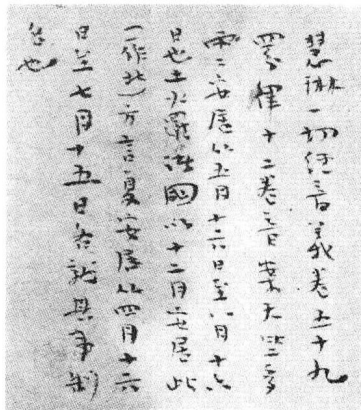 慧琳一切经音義卷五十九
四分律十二卷音案天竺多
雨名安居从五月十六日至八月十五
日也土火羅諸國以十二月安居此
(一作北)方言夏安居从四月十六
日至七月十五日各就其事制
名也